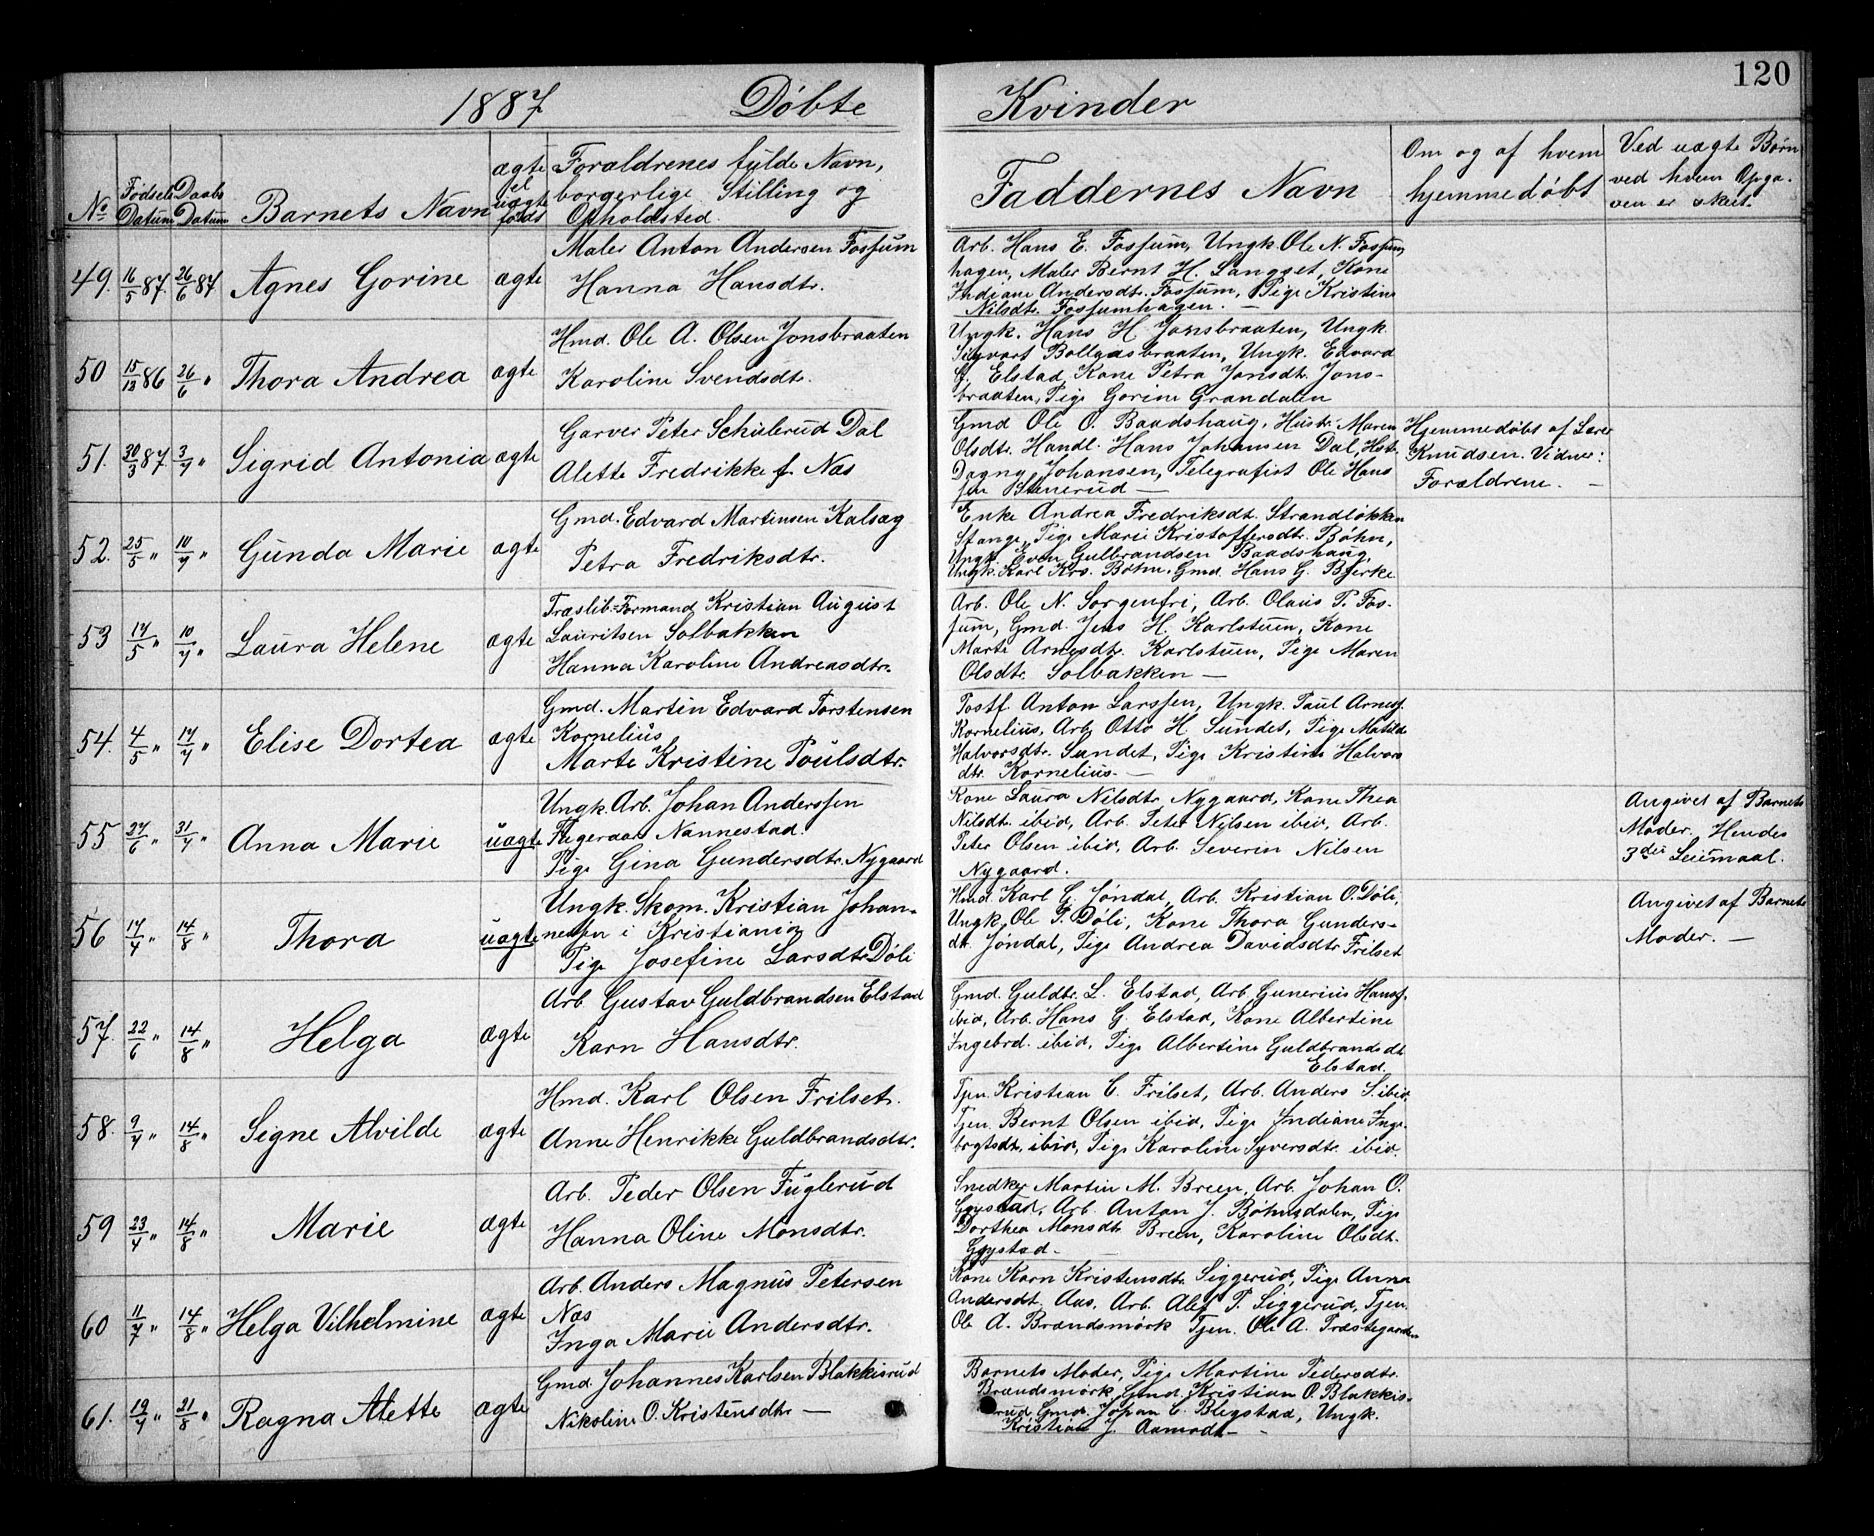 120
1887 Døbte Kvinder
No Fødsels Datum Daabs Datum Barnets Navn ægte el uægte født Forældrenes fulde Navn, borgerlige Stilling og Opholdsted. Faddernes Navn Om og af hvem hjemmedøbt Ved uægte Børn ved hvem Opgaven er skeet.
49. 16/5 87. 26/6 87 Agnes Gorine ægte
Maler Anton Andersen Fossum
Hanna Hansdtr.
Arb. Hans E. Fossum, Ungk. Ole N. Fossum
hagen, Maler Bernt H. Langset, Kone
Indiane Andersdtr. Fossum, Pige Kristine
Nilsdtr. Fossumhagen. —
50 15/12 86 26/6 " Thora Andrea ægte
Hmd. Ole A. Olsen Jonsbraaten
Karoline Svendsdtr.
Ungk. Hans H. Jonsbraaten, Ungk.
Sigvart Bollgaasbraaten, Ungk. Edvard
Elstad, Kone Petra Jonsdtr. Jons-
braaten, Pige Gorine Grandalen
51. 30/3 87 3/7 " Sigrid Antonia ægte
Garver Peter Schulerud Dal
Alette Fredrikke f. Næs
Gmd Ole O. Baadshaug, Hustr. Maren
Olsdtr. Handl. Hans Johansen Dal, Hstr.
Dagny Johansen, Telegrafist Ole Hans
sen Stenerud —
Hjemmedøbt af Lærer
Knudsen. Vidner:
Forældrene. —
52. 25/5 " 10/7 " Gunda Marie ægte
Gmd. Edvard Martinsen Kalsæg
Petra Fredriksdtr.
Enke Andrea Fredriksdt. Strandløkken
Stange, Pige Marie Kristoffersdtr. Bøhn,
Ungk. Even Gulbrandsen Baadshaug,
Ungk. Karl Krs. Bøhn. Gmd. Hans G. Bjerke
53 17/5 " 10/7 " Laura Helene ægte
Træslib-Formand Kristian August
Lauritsen Solbakken
Hanna Karoline Andreasdtr.
Arb. Ole N. Sorgenfri, Arb. Olaus P. Fos-
sum, Gmd. Jens H. Karlstuen, Kone
Marte Arnesdtr. Karlstuen, Pige Maren
Olsdtr. Solbakken —
54. 4/5 " 17/7 " Elise Dortea ægte
Gmd. Martin Edvard Torstensen
Kornelius
Marte Kristine Poulsdtr.
Postf. Anton Larssen, Ungk. Paul Arness.
Kornelius, Arb. Otto H. Sundet, Pige Matilde
Halvorsdtr. Sundet, Pige Kristine Halvors
dtr. Kornelius. —
55 27/6 " 31/7 " Anna Marie uægte
Ungk. Arb. Johan Anderssen
Nannestad.
Pige Gina Gundersdtr. Nygaard
Kone Laura Nilsdtr. Nygaard, Kone Thea
Nilsdt. ibid, Arb. Peter Nilsen ibid, Arb.
Peter Olsen ibid, Arb. Severin Nilsen
Nygaard.
Angivet af Barnets
Moder. Hendes
3die Leiermaal.
56 17/7 " 14/8 " Thora uægte
Ungk. Skom. Kristian Johan-
nesen i Kristiania
Pige Josefine Larsdtr. Døli
Hmd. Karl G. Jøndal, Arb. Kristian O. Døli,
Ungk. Ole P. Døli, Kone Thora Gunders-
dt. Jøndal, Pige Andrea Davidsdtr Frilset
Angivet af Barnets
Moder. —
57. 22/6 " 14/8 " Helga ægte
Arb. Gustav Guldbrandsen Elstad
Karn Hansdtr.
Gmd. Guldbr. L. Elstad, Arb. Gunerius Hanss.
ibid, Arb. Hans G. Elstad, Kone Albertine
Ingebrd. ibid, Pige Albertine Guldbrandsdt
Elstad.
58. 9/7 " 14/8 " Signe Alvilde ægte
Hmd. Karl Olsen Frilset.
Anne Henrikke Guldbrandsdtr.
Tjen. Kristian C. Frilset, Arb. Anders S. ibid,
Tjen. Bernt Olsen ibid, Pige Indiane Inge-
brgtsdt. ibid, Pige Karoline Syversdtr. ibid.
59 23/4 " 14/8 " Marie ægte
Arb. Peder Olsen Fuglerud
Hanna Oline Monsdtr.
Snedker Martin M. Breen, Arb. Johan O.
Gystad, Arb. Anton J. Bøhnsdalen, Pige
Dorthea Monsdtr Breen, Karoline Olsdt.
Gystad —
60 11/7 " 14/8 " Helga Vilhelmine ægte
Arb. Anders Magnus Petersen
Næs
Inga Marie Andersdtr.
Kone Karn Kristensdtr. Siggerud, Pige Anna
Andersdt. Aas, Arb. Alef P. Siggerud, Tjen.
Ole A. Brændsmørk Tjen. Ole A. Præstegaarden
61. 19/7 " 21/8 " Ragna Alette ægte
Gmd. Johannes Karlsen Blakkisrud
Nikoline O. Kristensdtr —
Barnets Moder, Pige Martine Pedersdtr.
Brændsmørk, Gmd. Kristian O. Blakkis-
rud, Gmd. Johan C. Blegstad, Ungk.
Kristian J. Aamodt —